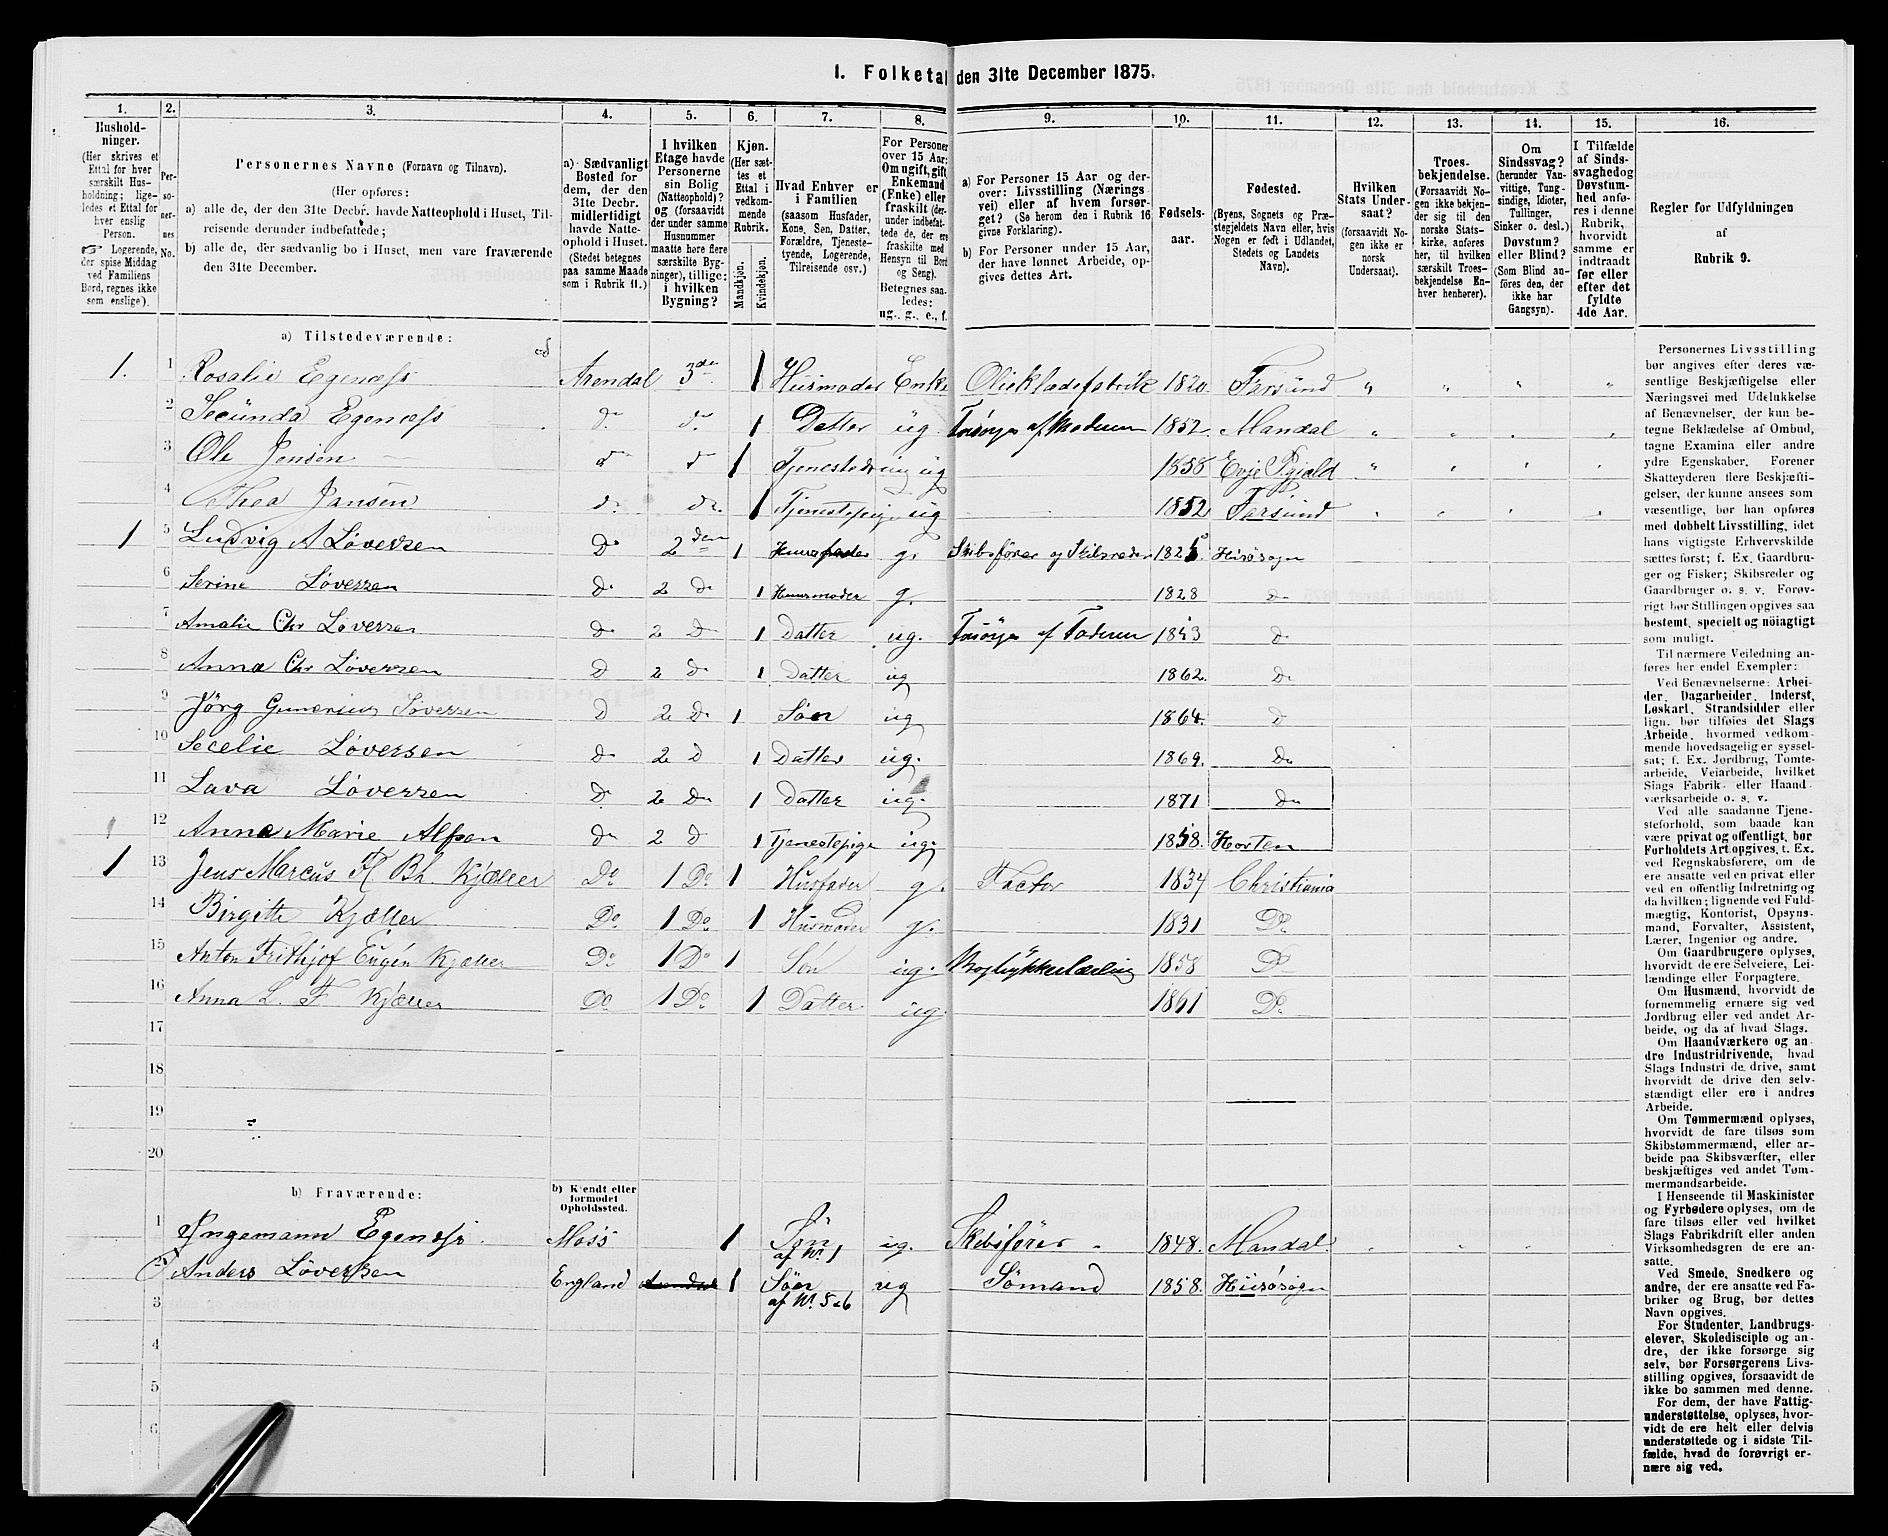 1. Folketal den 31te December 1875.
1. 2. 3. 4. 5. 6. 7. 8. 9. 10. 11. 12. 13. 14. 15. 16.
Hushold-
ninger.
(Her skrives et
Ettal for hver
særskilt Hus-
holdning; lige-
ledes et Ettal for
hver enslig
Person.
☞ Logerende,
der spise Middag
ved Familiens
Bord, regnes ikke
som enslige).
Per-
so-
ner-
nes
No.
Personernes Navne (Fornavn og Tilnavn).
(Her opføres:
a) alle de, der den 31te Decbr. havde Natteophold i Huset, Til-
reisende derunder indbefattede;
b) alle de, der sædvanlig bo i Huset, men vare fraværende
den 31te December.
a) Sædvanligt
Bosted for
dem, der den
31te Decbr.
midlertidigt
havde Natte-
ophold i Huset.
(Stedet betegnes
paa samme Maade
som i Rubrik 11.)
I hvilken
Etage havde
Personerne
sin Bolig
(Natteophold)?
og (forsaavidt
der under samme
Husnummer
maatte høre flere
særskilte Byg-
ninger), tillige:
i hvilken
Bygning?
Kjøn.
(Her sæt-
tes et
Ettal i
vedkom-
mende
Rubrik.
Mandkjøn.
Kvindekjøn.
Hvad Enhver er
i Familien
(saasom Husfader,
Kone, Søn, Datter,
Forældre, Tjeneste-
tyende, Logerende,
Tilreisende osv.)
For Personer
over 15 Aar:
Om ugift, gift,
Enkemand
(Enke) eller
fraskilt (der-
under indbefat-
tede de, der ere
fraskilte med
Hensyn til Bord
og Seng).
Betegnes saa-
ledes:
ug., g., e., f.
a) For Personer 15 Aar og der-
over: Livsstilling (Nærings
vei) eller af hvem forsør-
get? (Se herom den i Rubrik 16
givne Forklaring).
b) For Personer under 15 Aar,
der have lønnet Arbeide, op-
gives dettes Art.
Fødsels-
aar.
Fødested.
(Byens, Sognets og Præ-
stegjeldets Navn eller, hvis
Nogen er født i Udlandet,
Stedets og Landets
Navn).
Hvilken
Stats Under-
saat?
(forsaavidt No-
gen ikke er
norsk
Undersaat).
Troes-
bekjendelse.
(Forsaavidt No-
gen ikke bekjen-
der sig til den
norske Stats-
kirke, anføres
her, til hvilken
særskilt Troes-
bekjendelse En-
hver henhører).
Om
Sindssvag?
(herunder Van-
vittige, Tung-
sindige, Idioter,
Tullinger,
Sinker o. desl.)
Døvstum?
eller Blind?
(Som Blind an-
føres den, der
ikke har
Gangsyn).
I Tilfælde
af Sinds-
svaghed og
Døvstum-
hed anfø-
res i denne
Rubrik,
hvorvidt
samme er
indtraadt
før eller
efter det
fyldte
4de Aar.
Regler for Udfyldningen
af
Rubrik 9.
a) Tilstedeværende:
1. 1 Rosalie Egenæss Arendal 3de 1 Husmoder Enke Olieklædefabrik 1820. Farsund „ „ „ „
2 Secunda Egenæss do do 1 Datter ug. Forsørges af Moderen 1852. Mandal „ „ „ „
3 Ole Jensen do do 1 ug 1858 Evje „ „ „ „
4 Thea Jansen do do. 1 Tjenestepige ug 1852 Farsund „ „ „ „
1 5 Ludvig A Løversen Do 2den 1 Huusfader g. Skibsfører og Skibsreder 1825. Hisøsogn
6 Serine Løversen Do 2 Do 1 Huusmoder g. 1828 Do
7 Amalie Chr Løversen Do 2 Do 1 Datter ug. Forsørges af Faderen 1853 Do
8 Anna Chr Løversen Do 2 Do 1 Datter ug 1862. Do
9 Jörg Gunerius Løversen Do 2 Do 1 Søn ug 1864. Do
10 Secelie Løversen Do 2 Do 1 Datter ug. 1869. Do
11 Lava Løversen Do 2 Do 1 Datter ug. 1871 Do
1 12 Anna Marie Alfsen Do 2 Do 1 Tjenestepige ug. 1858. Horten
1 13 Jens Marcus F Bh. Kjæller Do 1 Do 1 Husfader g. Factor 1834 Christiania
14 Birgitte Kjæller Do 1 Do 1 Husmoder g. 1831 Do
15 Anton Frithjof Eugén Kjæller Do 1 Do 1 Søn ug. Bogtrykkerlærling 1858 Do
16 Anna L. F. Kjæller Do 1 Do 1 Datter ug. 1861 Do
17
18
19
20
b) Fraværende:
b) Kjendt eller
formodet
Opholdssted.
1 Ingemann Egenæss. Moss 1 Søn af No. 1 ug. Skibsfører 1848. Mandal.
2 Anders Løversen England Arendal 1 Søn af No. 5 & 6 ug Sømand 1858. Hisøsogn
3
4
5
6
Personernes Livsstilling
bør angives efter deres væ-
sentlige Beskjæftigelse eller
Næringsvei med Udelukkelse
af Benævnelser, der kun be-
tegne Beklædelse af Ombud,
tagne Examina eller andre
ydre Egenskaber. Forener
Skatteyderen flere Beskjæfti-
gelser, der kunne ansees som
væsentlige, bør han opføres
med dobbelt Livsstilling, idet
hans vigtigste Erhvervskilde
sættes først; f. Ex. Gaardbru-
ger og Fisker; Skibsreder og
Gaardbruger o. s. v. Forøv-
rigt bør Stillingen opgives saa
bestemt, specielt og nöiagtigt
som muligt.
Til nærmere Veiledning an-
føres her endel Exempler:
Ved Benævnelserne: Arbei-
der, Dagarbeider, Inderst,
Løskarl, Strandsidder eller
lign. bør tilføies det Slags
Arbeide, hvormed vedkom-
mende hovedsagelig er syssel-
sat; f. Ex. Jordbrug, Tomte-
arbeide, Veiarbeide, hvilket
Slags Fabrik- eller Haand-
værksarbeide o. s. v.
Ved alle saadanne Tjene-
steforhold, som baade kan
være privat og offentligt, bør
Forholdets Art opgives, t. Ex.
ved Regnskabsførere, om de
ere ansatte ved en privat eller
ved en offentlig Indretning og
da hvilken; lignende ved Fuld-
mægtig, Kontorist, Opsyns-
mand, Forvalter, Assistent,
Lærer, Ingeniør og andre.
Om Gaardbrugere oplyses,
hvorvidt de ere Selveiere, Lei-
lændinge eller Forpagtere.
Om Husmænd, hvorvidt de
fornemmelig ernære sig ved
Jordbrug eller ved andet Ar-
beide, og da af hvad Slags.
Om Haandværkere og an-
dre Industridrivende, hvad
Slags Industri de drive, samt
hvorvidt de drive den selv-
stændigt eller ere i andres
Arbeide.
Om Tømmermænd oplyses,
hvorvidt de fare tilsøs som
Skibstømmermænd, eller ar-
beide paa Skibsværfter, eller
beskjæftiges ved andet Tøm-
mermandsarbeide.
I Henseende til Maskinister
og Fyrbødere oplyses, om de
fare tilsøs eller ved hvilket
Slags Fabrikdrift eller anden
Virksomhedsgren de ere an-
satte.
Ved Smede, Snedkere og
andre, der ere ansatte ved Fa-
briker og Brug, bør dettes
Navn opgives.
For Studenter, Landbrugs-
elever, Skoledisciple og an-
dre, der ikke forsørge sig
selv, bør Forsørgerens Livs-
stilling opgives, forsaavidt de
ikke bo sammen med denne.
For dem, der have Fattig-
understøttelse, oplyses, hvor-
vidt de ere helt eller delvis
understøttede og i sidste Til-
fælde, hvad de forøvrigt er-
nære sig ved.